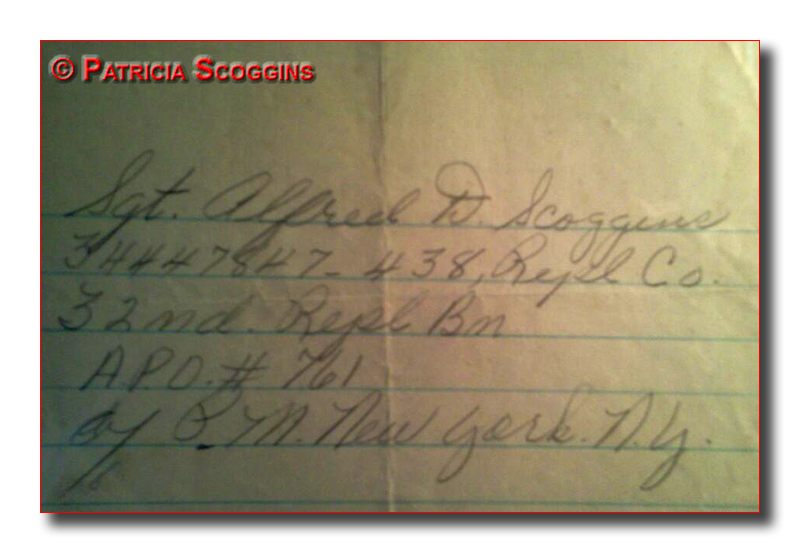 © Patricia Scoggins
Sgt. Alfred D. Scoggins
34447847- 438, Repl Co.
32nd. Repl Bn
A.P.O. # 761
P.M. New York. N.Y.